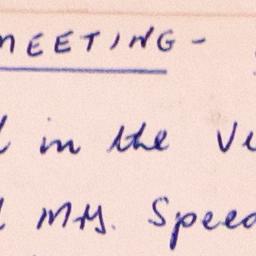 MEETING -
in the
Mrs. Speed